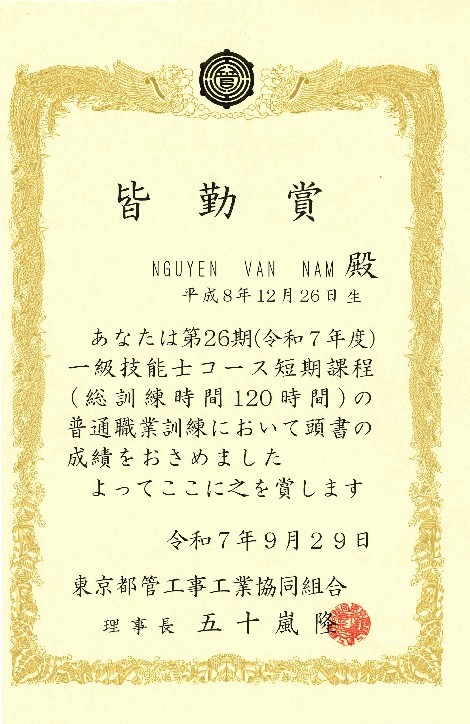 皆勤賞
NGUYEN VAN NAM 殿
平成8年12月26日生
あなたは第26期(令和7年度)
一級技能士コース短期課程
(総訓練時間120時間)の
普通職業訓練において頭書の
成績をおさめました
よってここに之を賞します
令和7年9月29日
東京都管工事工業協同組合
理事長 五十嵐 隆